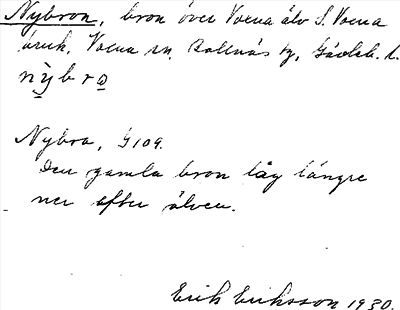 Nybron, bron över Voxna älv S. Voxna
bruk, Voxna sn, Bollnäs tg, Gävleb. l.
nỳbro
Nybro, G109.
Den gamla bron låg längre
ner efter älven.
Erik Eriksson 1930.